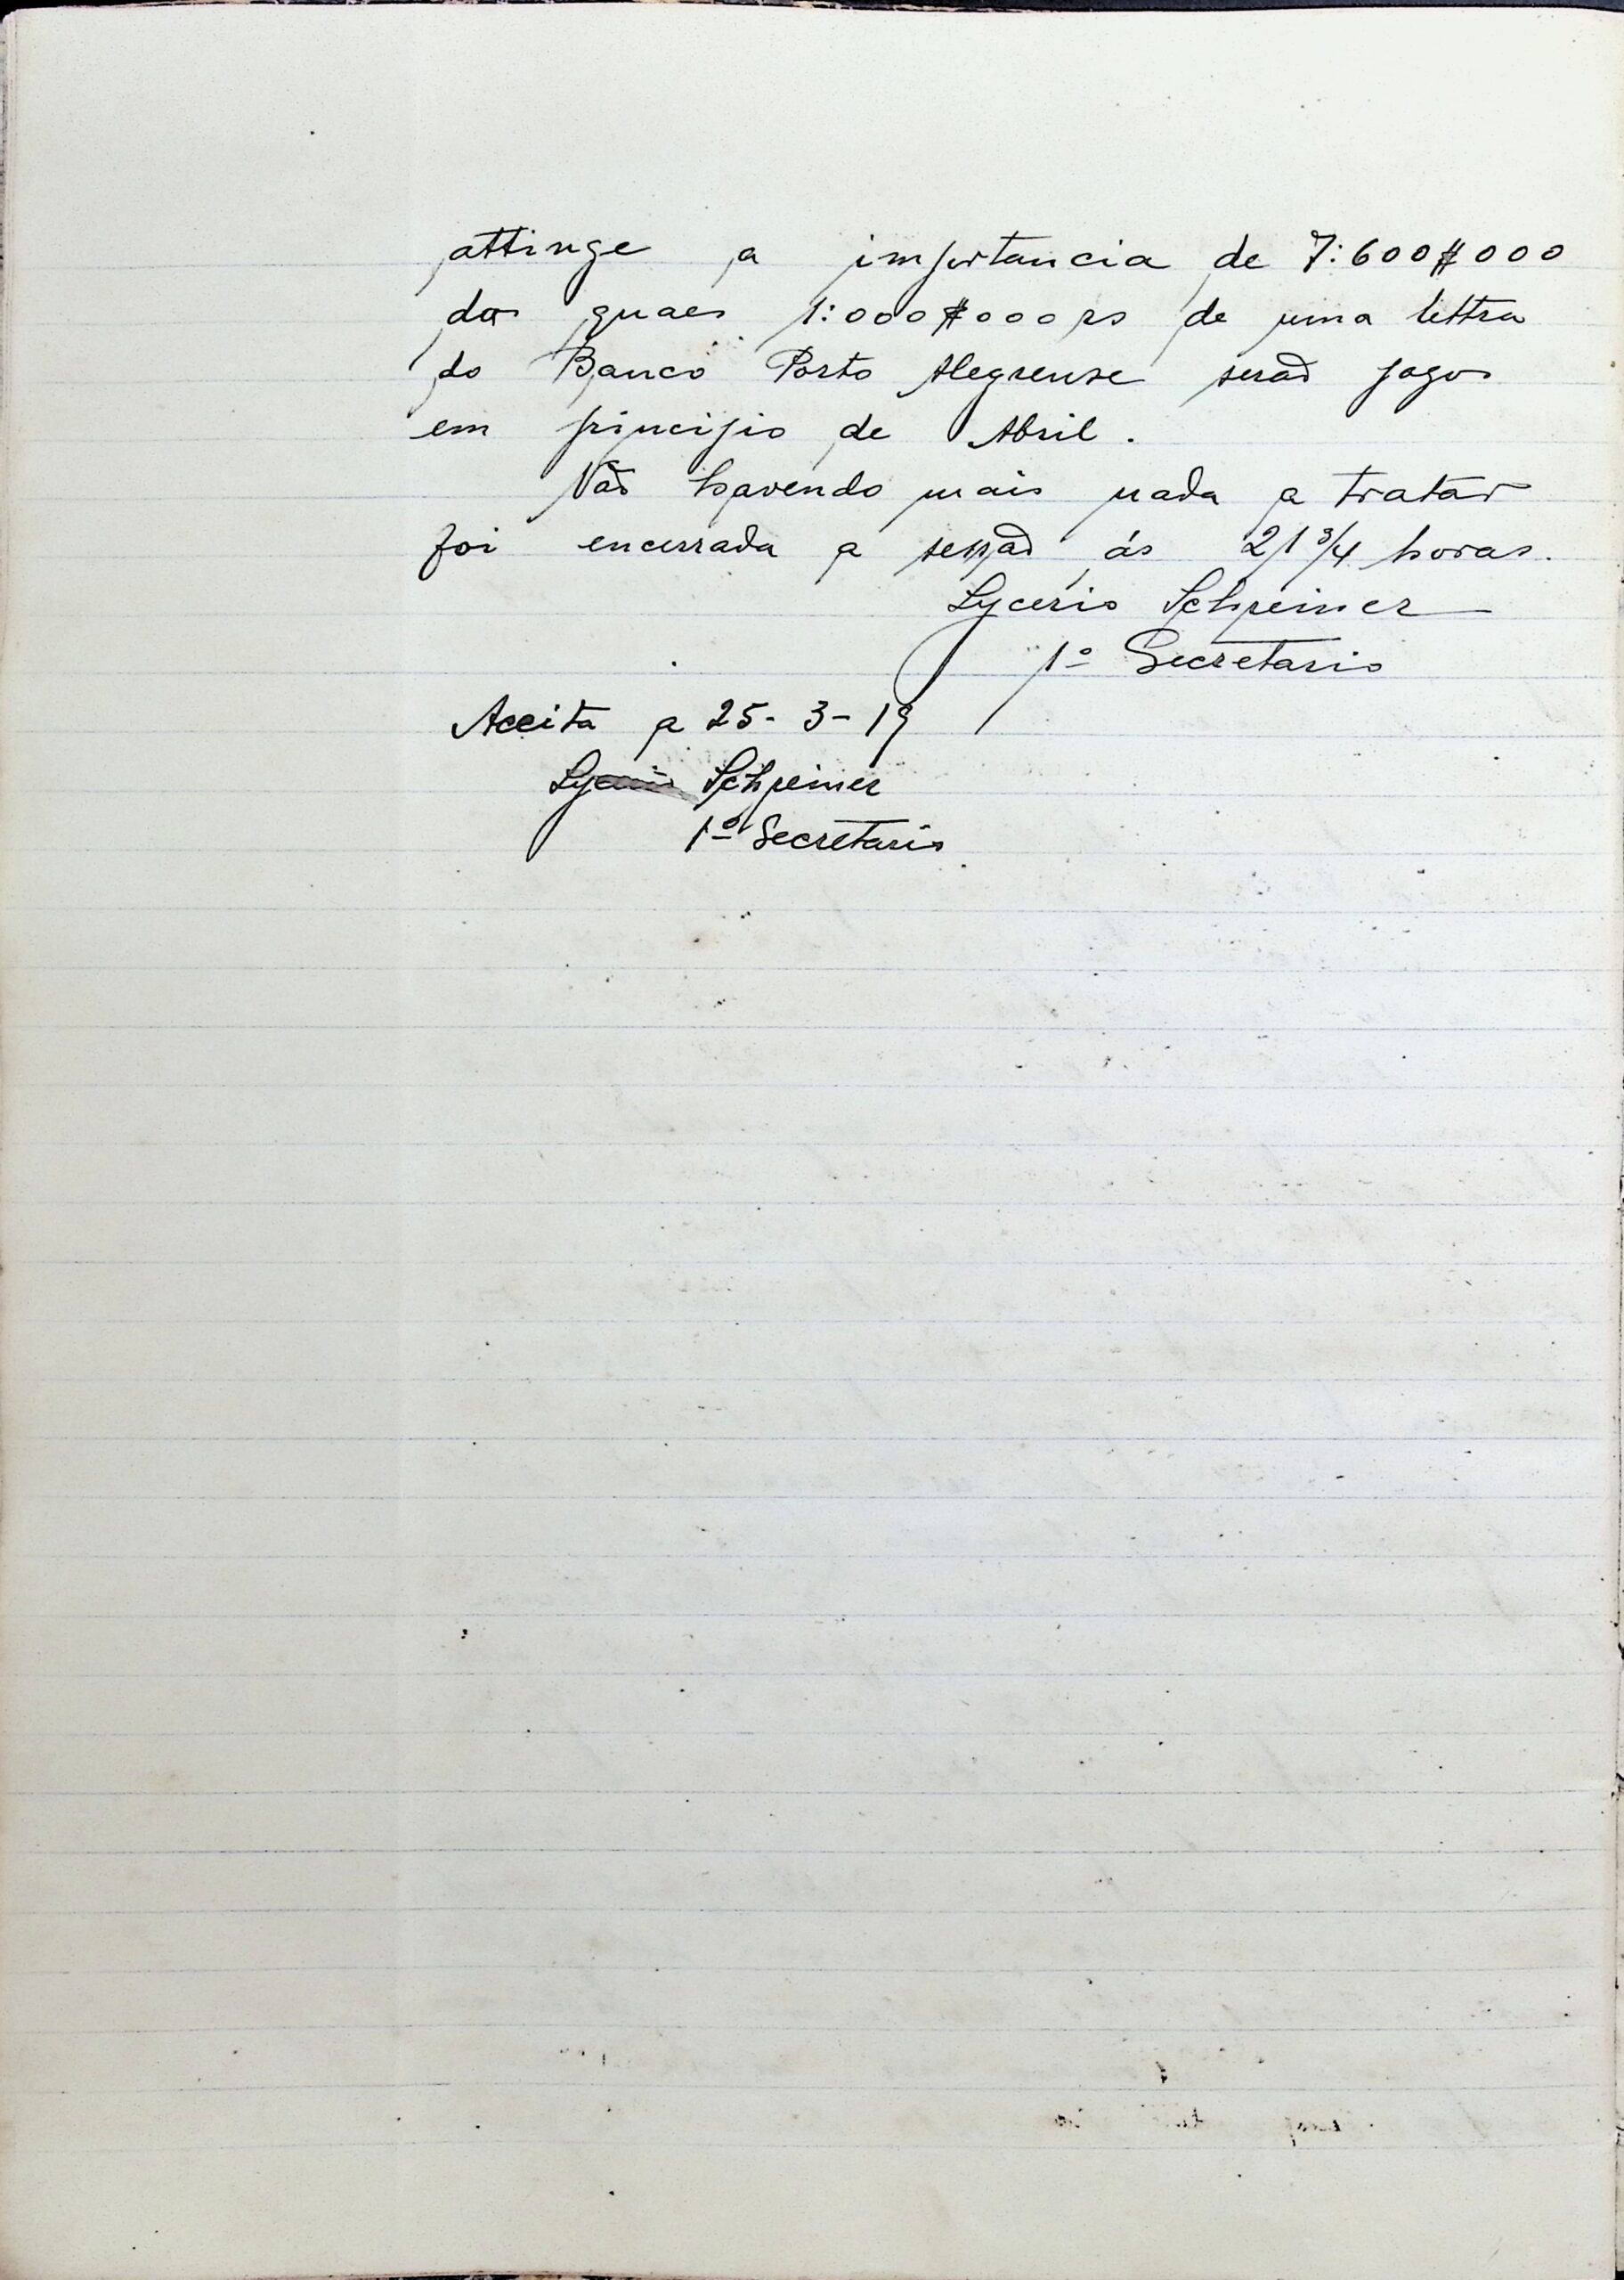 attinge a importancia de 7:600$000
dos quaes 1:000$000 rs de uma lettra
do Banco Porto Alegrense serão pagos
em principio de Abril.
Não havendo mais nada a tratar
foi encerrada a sessão ás 21 3/4 horas.
Lycerio Schreiner
1º Secretario
Acceita a 25-3-19
Lycerio Schreiner
1º Secretario